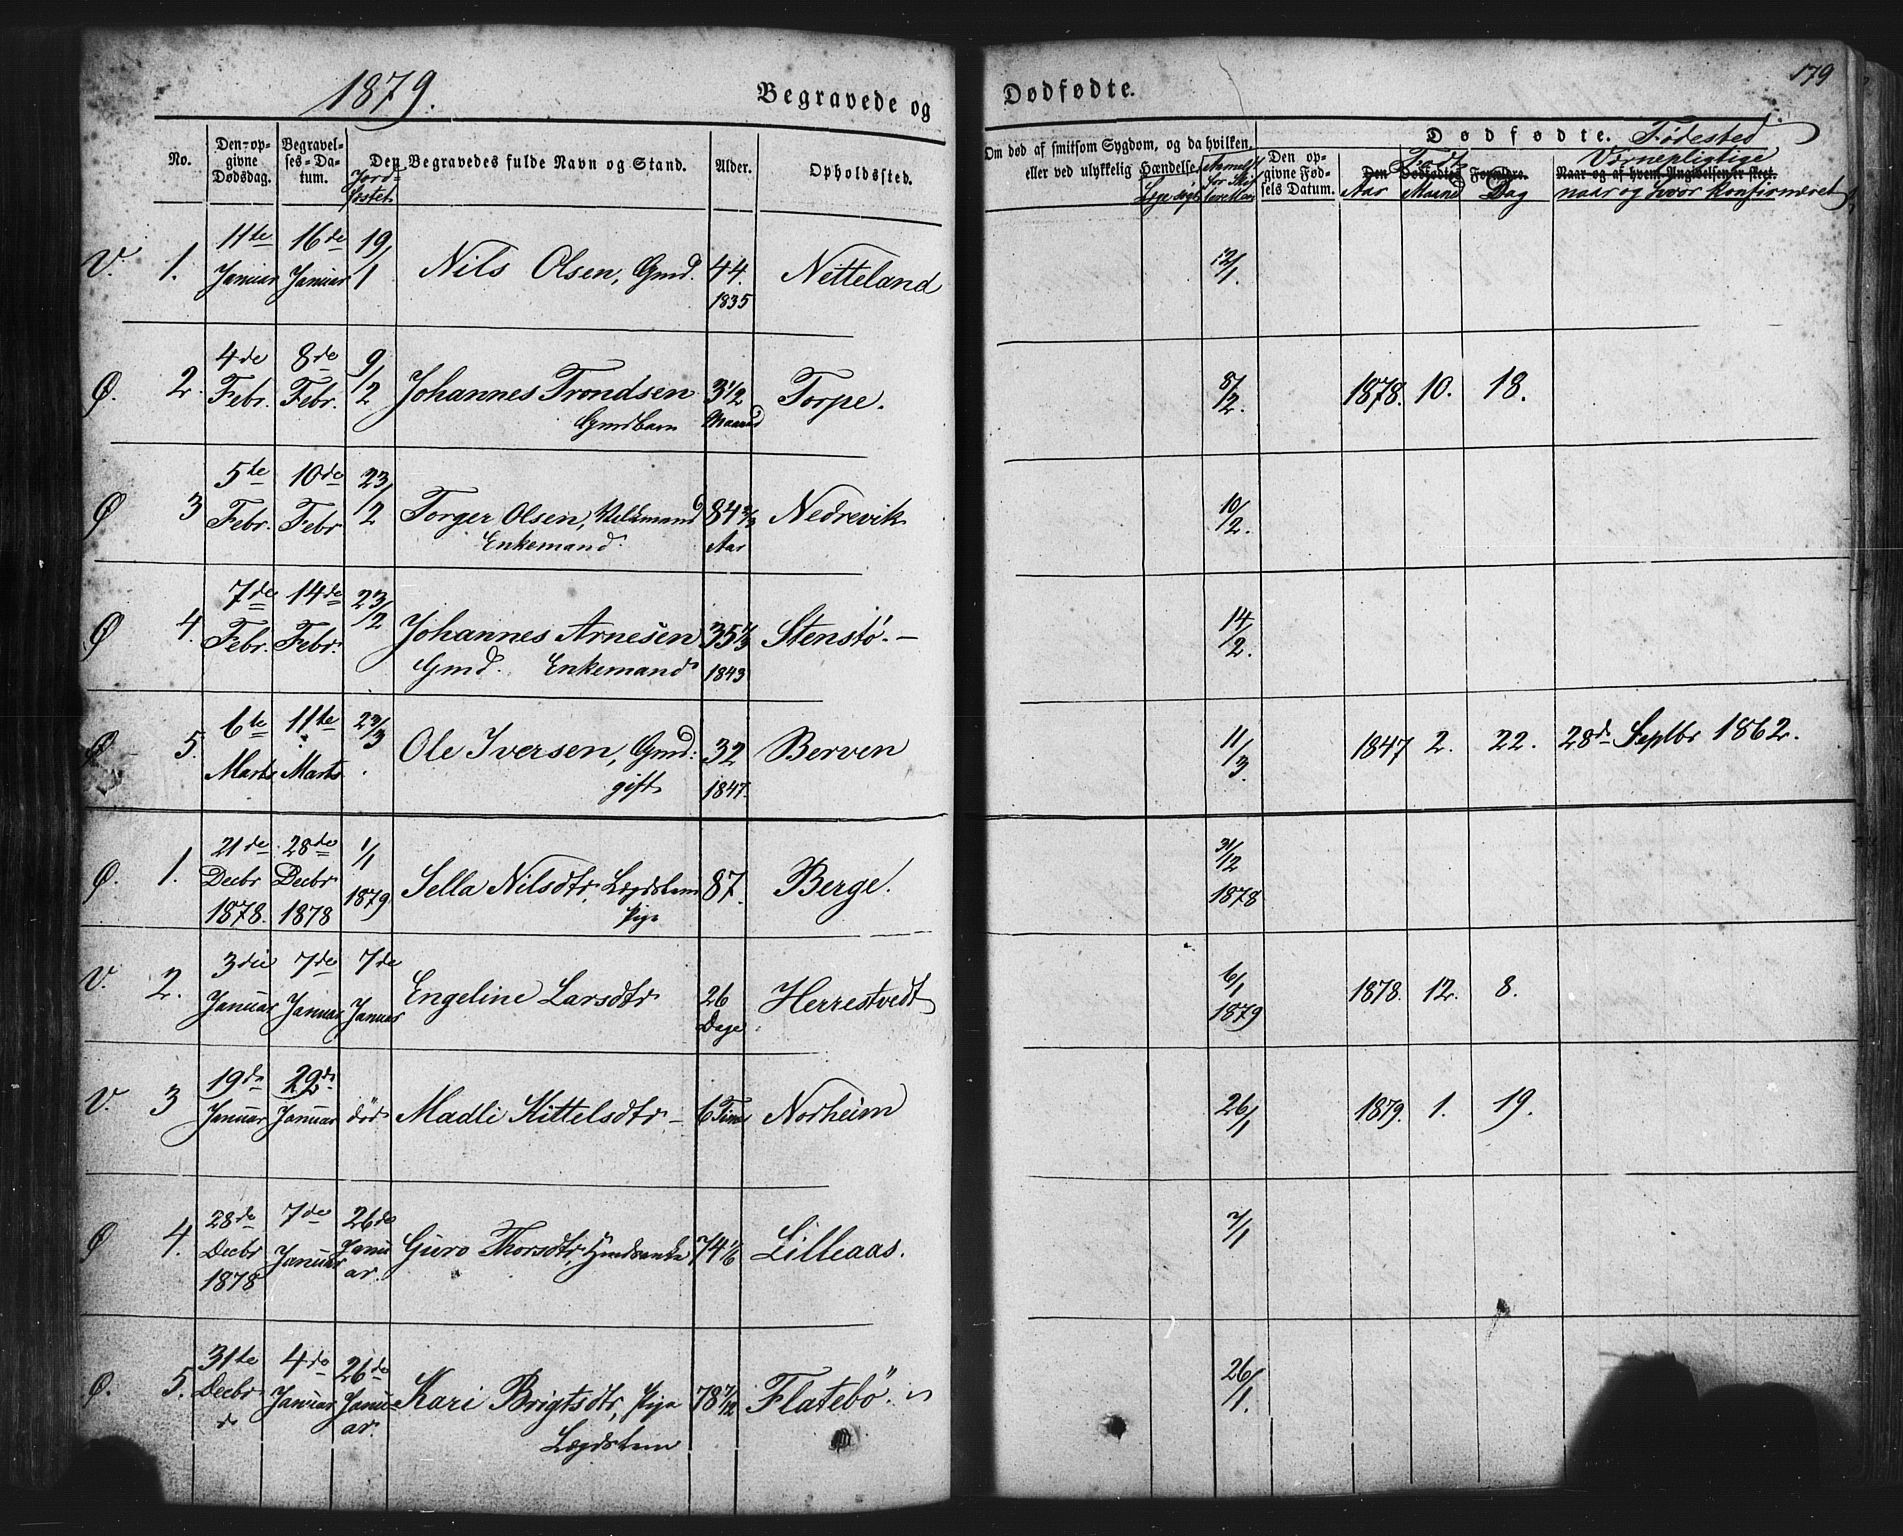 1879.
Begravede og
Dødfødte.
179
No.
Den opgivne Dødsdag.
Begravelses-Datum.
Jordfæstet
Den Begravedes fulde Navn og Stand.
Alder.
Opholdssted.
Om død af smitsom Sygdom, og da hvilken,
eller ved ulykkelig Hændelse.
Den opgivne Fødsels Datum.
Dødfødte. Fødested
Født
Værnepligtige
Den Dødfødtes Forældre.
Naar og af hvem Angivelsen er skeet.
Aar Maaned Dag naar og hvor Konfirmeret
11te 16de 19/1
V. 1. Januar Januar Nils Olsen, Gmd. 44. Netteland 12/1.
1835
4de 8de 9/2
Ø. 2. Febr. Febr. Johannes Trondsen 3 1/2 Torpe. 8/2. 1878. 10. 18.
Gmdbarn Maaned
5te 10de 23/2
Ø 3 Febr. Febr. Torger Olsen, 84 Nedrevik 10/2.
Enkemand. Aar
7de 14de 23/2
Ø 4. Febr. Febr. Johannes Arnesen 35 1/3 Stenstö. 14/2.
Gmd. Enkemand 1843
6te 11te 23/3
Ø 5. Marts Marts. Ole Iversen, Gmd: 32 Berven 11/3. 1847 2. 22. 28de Septbr 1862.
gift 1847.
21de 28de 1/1 31/12
Ø. 1. Decbr Decbr 1879 Sella Nilsdtr, Lægdslem 87. Berge. 1878
1878. 1878 Pige
3die 7de 7de 6/1
V. 2. Januar Januar Januar Engeline Larsdtr 26 Herrestvedt 1879 1878. 12. 8.
Dage
19de 29de
V. 3 Januar Januar död Madli Kittelsdtr 6 Timer Norheim 26/1 1879. 1. 19.
28de 7de 26de
Ø 4. Decbr Januar Januar. Guro Thorsdtr, Gmdsenke 74 1/6 Lilleaas. 7/1
1878
31te 4de 26de
Ø. 5. Decbr Januar Januar. Kari Brigtsdtr, Pige 78 7/12 Flatebö. 26/1.
Lægdslem